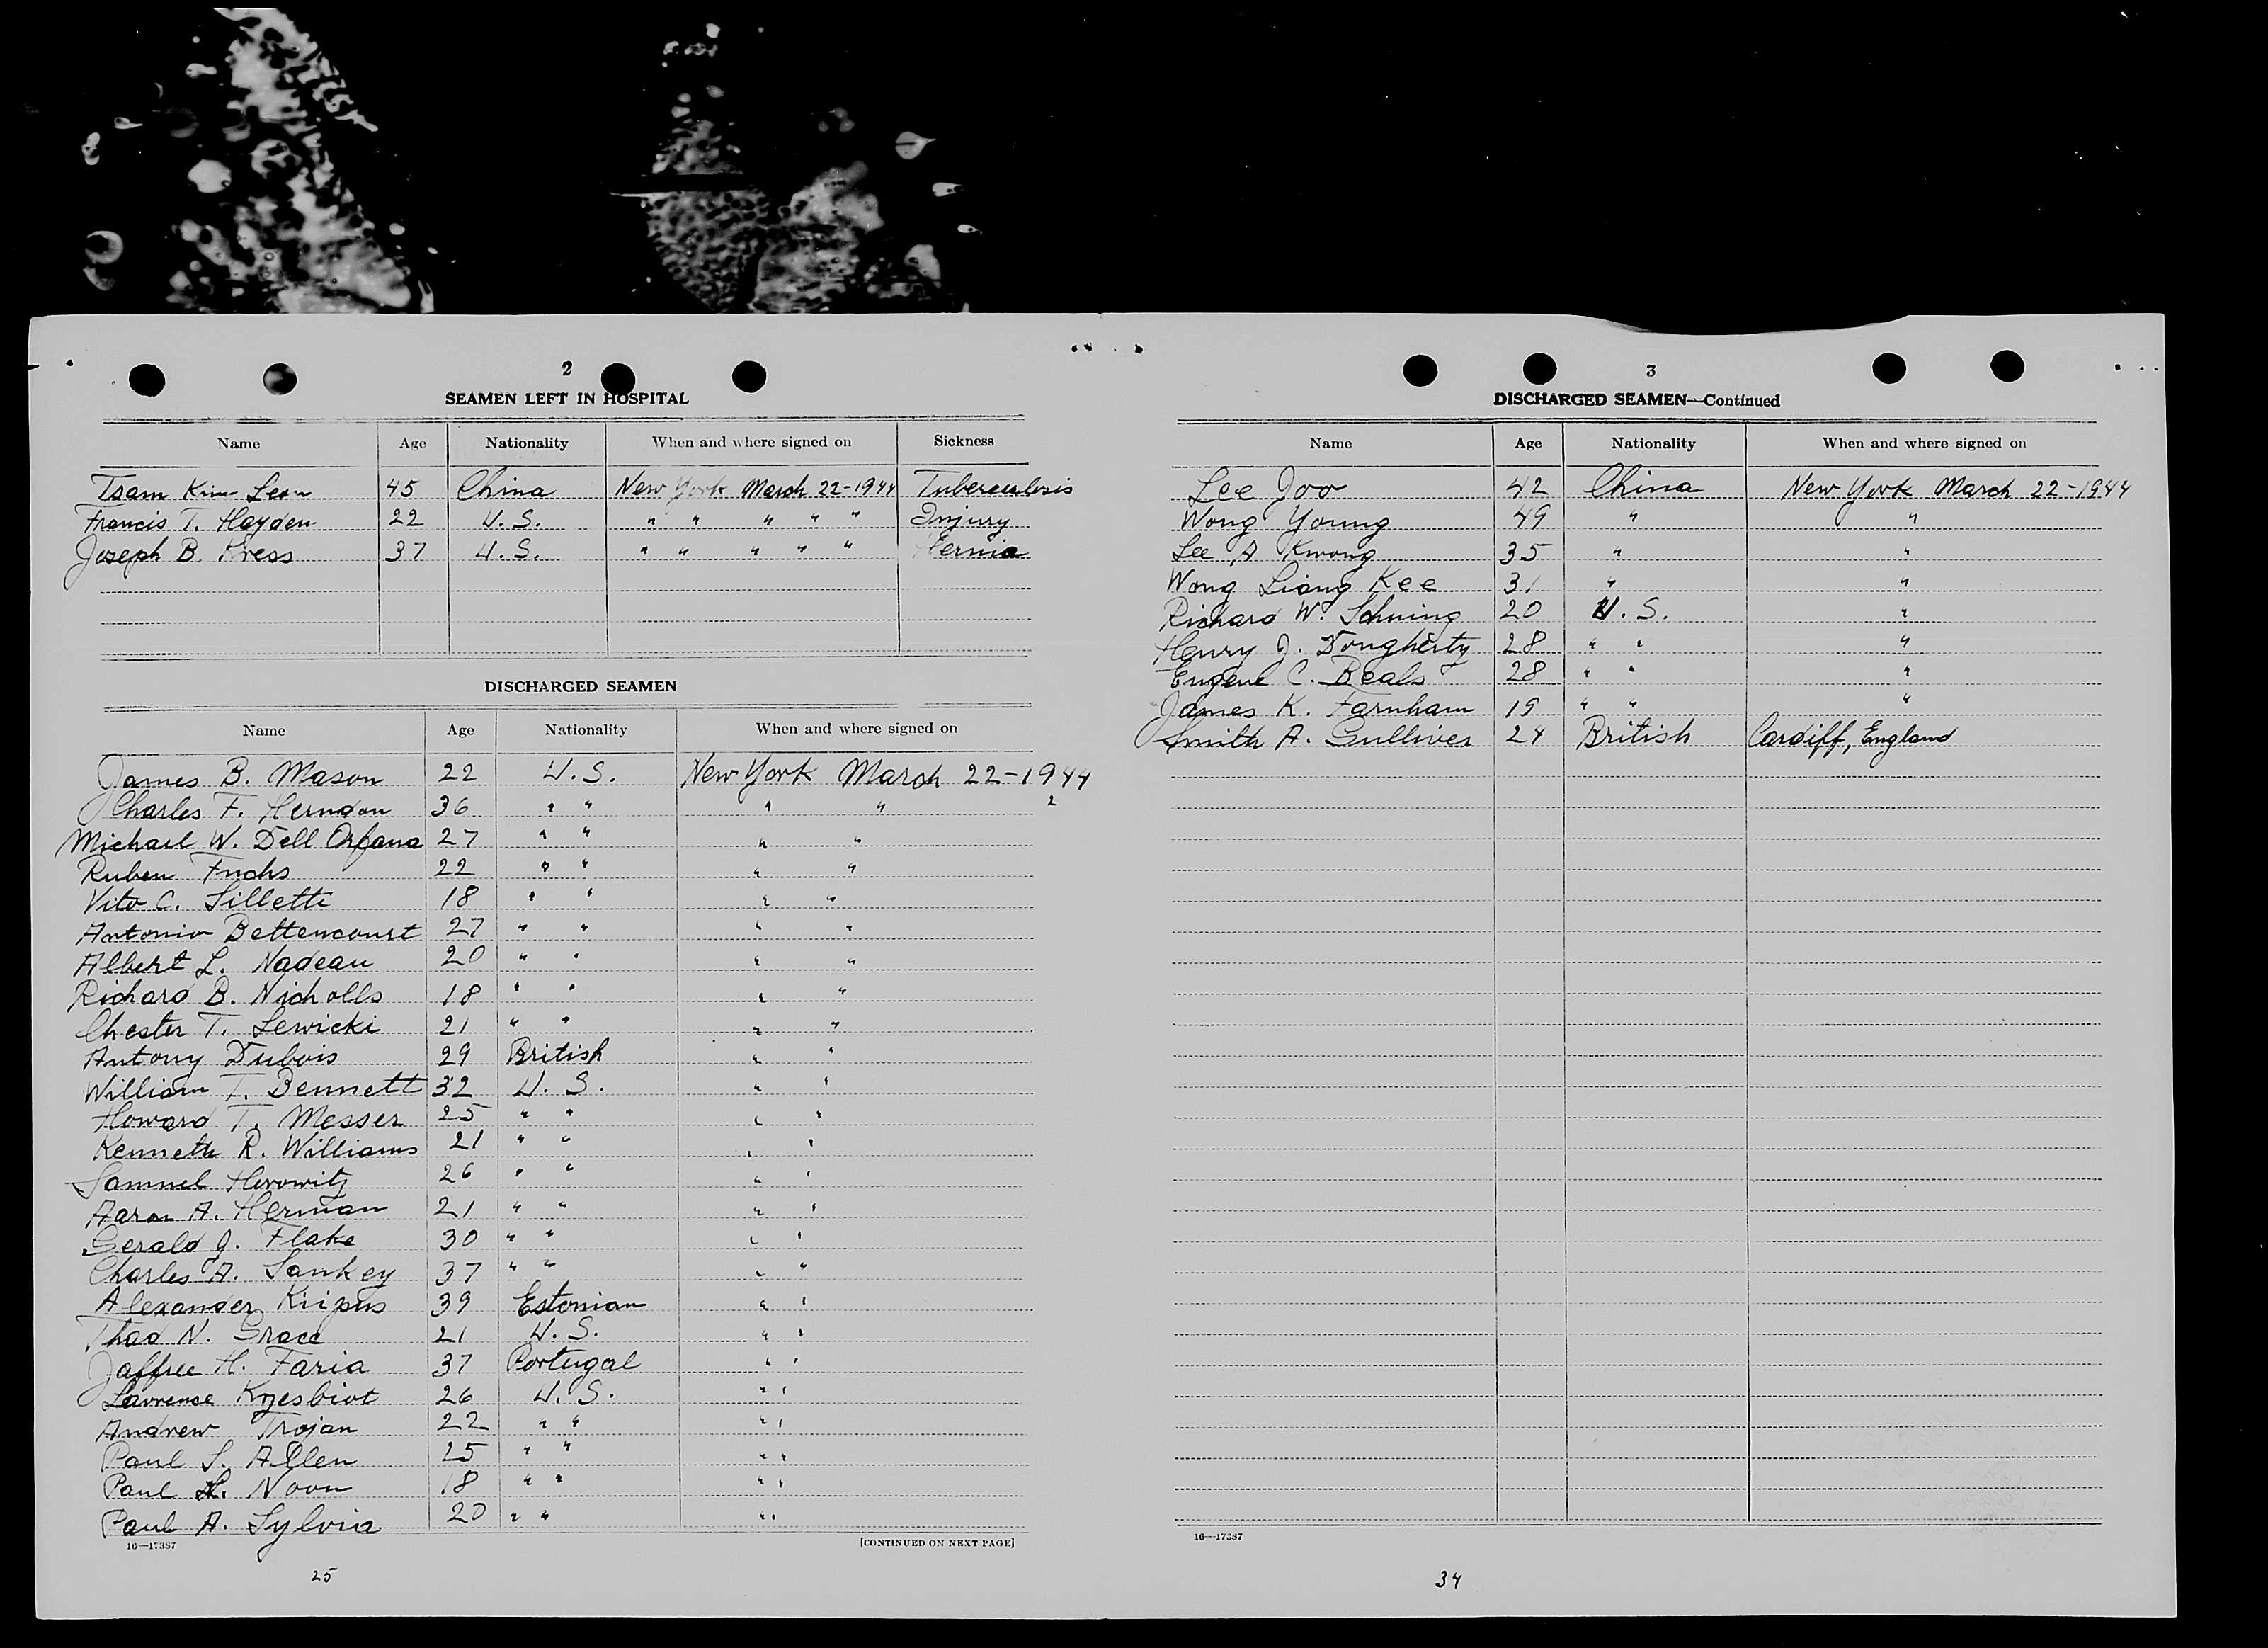 2
SEAMEN LEFT IN HOSPITAL
Name Age Nationality When and where signed on Sickness
Tsam Kim Leon 45 China New York March 22-1944 Tuberculosis
Francis T. Hayden 22 U.S. " " " " " Injury
Joseph B. Kress 37 U.S. " " " " " Hernia
DISCHARGED SEAMEN
Name Age Nationality When and where signed on
James B. Mason 22 U.S. New York March 22-1944
Charles F. Herndon 36 " " " " "
Michael W. Dell Orfana 27 " " " "
Ruben Fuchs 22 " " " "
Vito C. Silletti 18 " " " "
Antonio Bettencourt 27 " " " "
Albert L. Nadeau 20 " " " "
Richard B. Nicholls 18 " " " "
Chester T. Lewicki 21 " " " "
Antony Dubois 29 British " "
William T. Bennett 32 U.S. " "
Howard T. Messer 25 " " " "
Kenneth R. Williams 21 " " " "
Samuel Horowitz 26 " " " "
Aaron A. Herman 21 " " " "
Gerald J. Flake 30 " " " "
Charles A. Sankey 37 " " " "
Alexander 39 Estonian " "
Thad N. Grace 21 U.S. " "
Jaffree H. Faria 37 Portugal " "
Lawrence 26 U.S. " "
Andrew Trojan 22 " " " "
Paul S. Allen 25 " " " "
Paul H. Noon 18 " " " "
Paul A. Sylvia 20 " " " "
16—17387 [CONTINUED ON NEXT PAGE]
25
3
DISCHARGED SEAMEN—Continued
Name Age Nationality When and where signed on
Lee Joo 42 China New York March 22-1944
Wong Young 49 " "
Lee A Kwong 35 " "
Wong Liang Kee 31 " "
Richard W. Schning 20 U.S. "
Henry J. Dougherty 28 " " "
Eugene C. Beals 28 " " "
James K. Farnham 19 " " "
Smith A. Gulliver 24 British Cardiff, England
16—17387
34